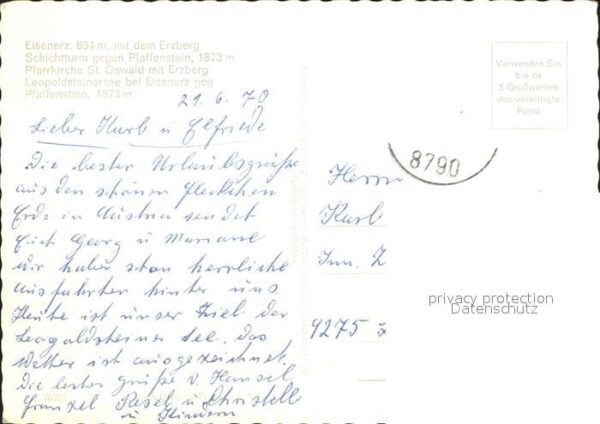 Eisenerz, 694 m, mit dem Erzberg
Schichtturm gegen Pfaffenstein, 1873 m
Pfarrkirche St. Oswald mit Erzberg
Leopoldsteinersee bei Eisenerz geg
Pfaffenstein, 1873 m
21.6.70
Lieber Kurt u Elfriede
Die besten Urlaubsgrüße
aus den schönen Fleckchen
Erde in Austria sendet
Euch Georg u Mariane
wir haben schon herrliche
Ausfahrten hinter uns
Heute ist unser Ziel der
Leopoldsteiner See. das
Wetter ist ausgezeichnet.
Die besten Grüße v. Hansel
Franzel Resel u Christell
u Kindern
Verwenden Sie
bis zu
5 Grußworten
das verbilligte
Porto
8790
Herrn
Kurt
Inn. Z
9275
privacy protection
Datenschutz